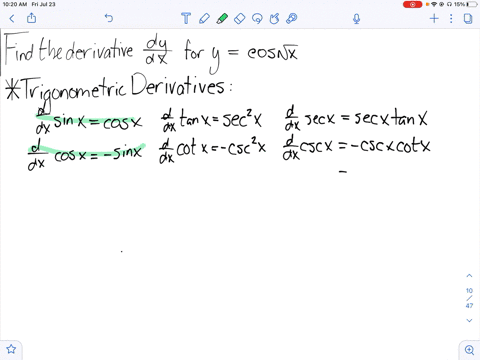 10:20 AM Fri Jul 23
15%
Find the derivative dy/dx for y = cos√x
*Trigonometric Derivatives:
d/dx sinx = cosx d/dx tanx = sec²x d/dx secx = secx tanx
d/dx cosx = -sinx d/dx cotx = -csc²x d/dx cscx = -cscx cotx
=
10
/
47